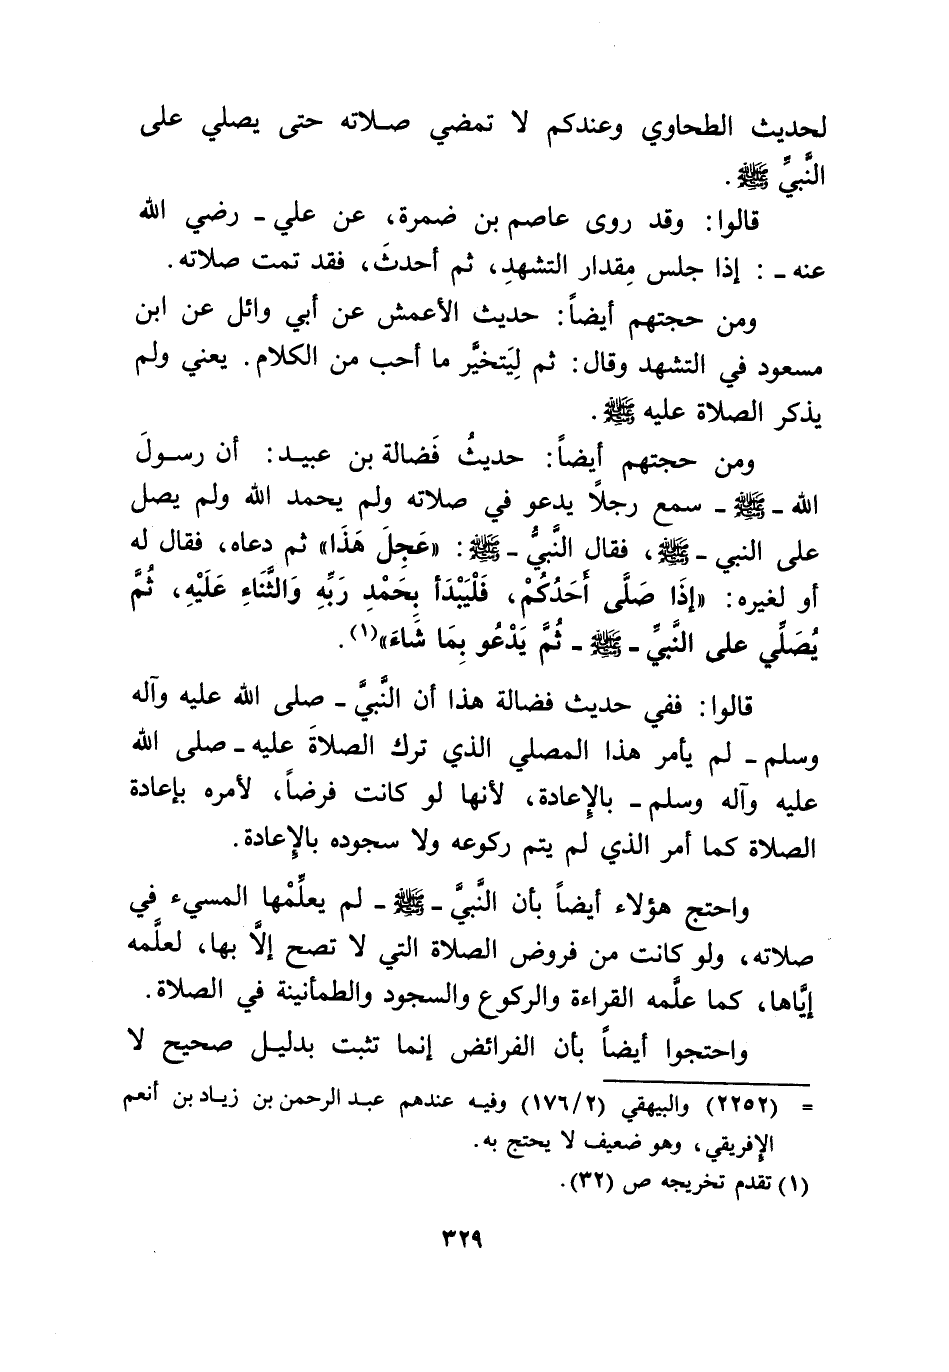 لحديث الطحاوي وعندكم لا تمضي صلاته حتى يصلي على
النَّبيِّ ﷺ.
قالوا: وقد روى عاصم بن ضمرة، عن علي ـ رضي الله
عنه ـ: إذا جلس مِقدار التشهدِ، ثم أحدثَ، فقد تمت صلاته.
ومن حجتهم أيضاً: حديث الأعمش عن أبي وائل عن ابن
مسعود في التشهد وقال: ثم لِيَتخيَّر ما أحب من الكلام. يعني ولم
يذكر الصلاة عليه ﷺ.
ومن حجتهم أيضاً: حديثُ فَضالة بن عبيد: أن رسولَ
الله ـ ﷺ ـ سمع رجلًا يدعو في صلاته ولم يحمد الله ولم يصل
على النبي ـ ﷺ، فقال النَّبيُّ ـ ﷺ: «عَجِلَ هَذَا» ثم دعاه، فقال له
أو لغيره: «إذَا صَلَّى أَحَدُكُمْ، فَلْيَبْدَأ بِحَمْدِ رَبِّهِ وَالثَّنَاءِ عَلَيْهِ، ثُمَّ
يُصَلِّي على النَّبيِّ ـ ﷺ ـ ثُمَّ يَدْعُو بِمَا شَاءَ»(١).
قالوا: ففي حديث فضالة هذا أن النَّبيَّ ـ صلى الله عليه وآله
وسلم ـ لم يأمر هذا المصلي الذي ترك الصلاةَ عليه ـ صلى الله
عليه وآله وسلم ـ بالإِعادة، لأنها لو كانت فرضاً، لأمره بإعادة
الصلاة كما أمر الذي لم يتم ركوعه ولا سجوده بالإِعادة.
واحتج هؤلاء أيضاً بأن النَّبيَّ ـ ﷺ ـ لم يعلِّمْها المسيء في
صلاته، ولو كانت من فروض الصلاة التي لا تصح إلَّا بها، لعلَّمه
إيَّاها، كما علَّمه القراءة والركوع والسجود والطمأنينة في الصلاة.
واحتجوا أيضاً بأن الفرائض إنما تثبت بدليل صحيح لا
= (٢٢٥٢) والبيهقي (١٧٦/٢) وفيه عندهم عبد الرحمن بن زياد بن أنعم
الإِفريقي، وهو ضعيف لا يحتج به.
(١) تقدم تخريجه ص (٣٢).
٣٢٩